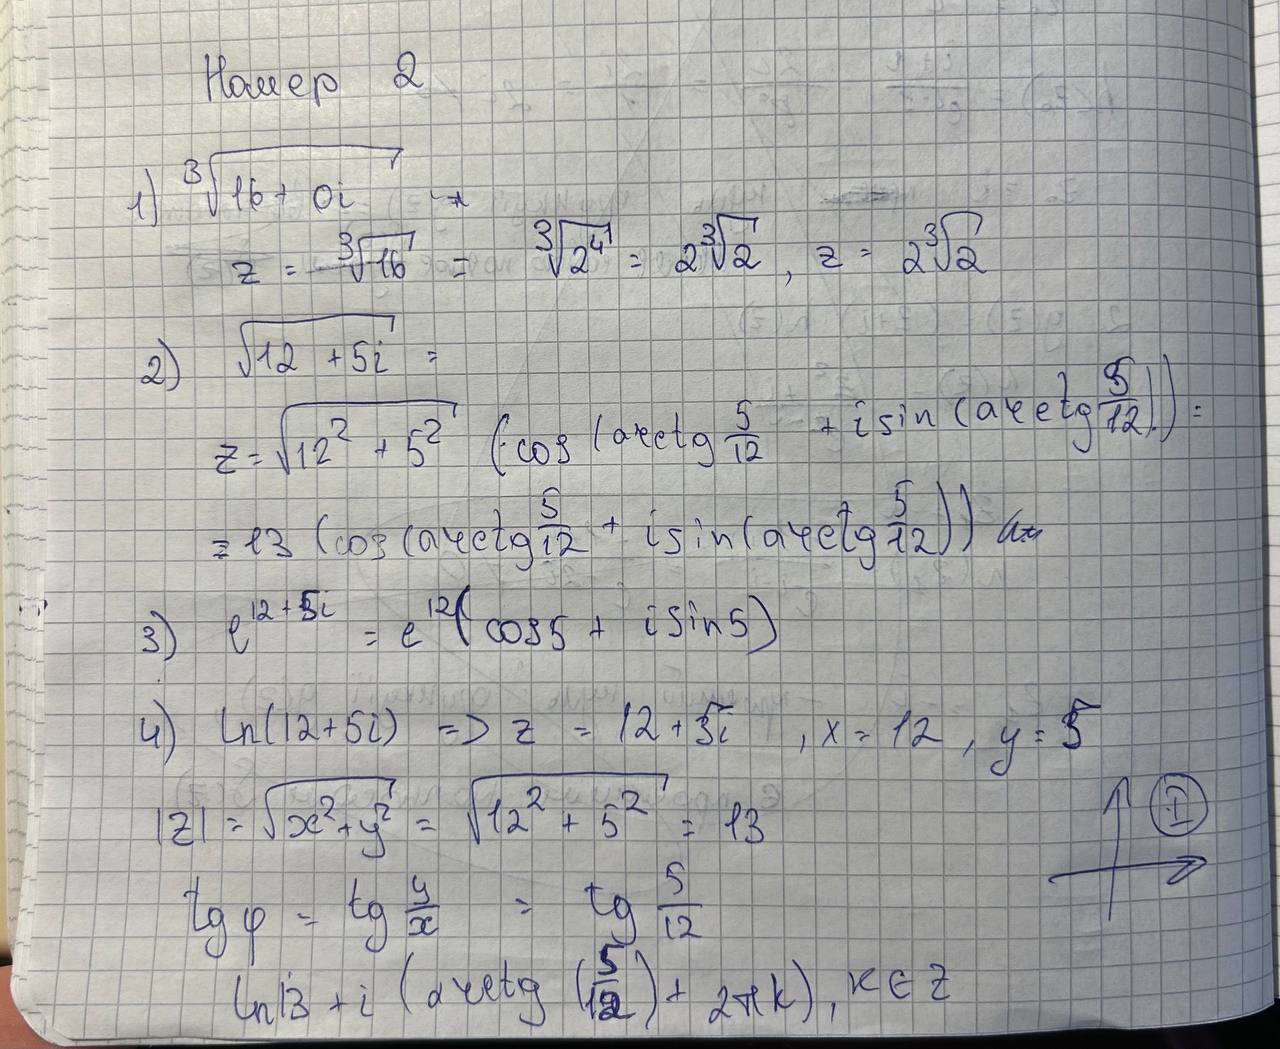 Номер 2
1) ∛(16 + 0i)
z = ∛16 = ∛(2⁴) = 2∛2 , z = 2∛2
2) √(12 + 5i) =
z = √(12² + 5²) (cos (arctg 5/12 + i sin (arctg 5/12)) =
= 13 (cos (arctg 5/12 + i sin (arctg 5/12))
3) e^(12+5i) = e^12 (cos5 + i sin5)
4) ln(12+5i) => z = 12 + 5i , x = 12 , y = 5
|z| = √(x² + y²) = √(12² + 5²) = 13
I
tg φ = tg y/x = tg 5/12
ln13 + i (arctg (5/12) + 2πk), k ∈ Z